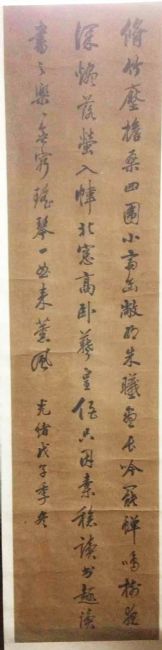 修竹壓檐桑四圍小齋幽敞明朱曦晝長吟罷蟬鳴樹夜
深燼落螢入幃北窗高臥羲皇侶只因素稔讀書趣讀
書之樂〻無窮瑤琴一曲來薰風 光緒戊子季冬